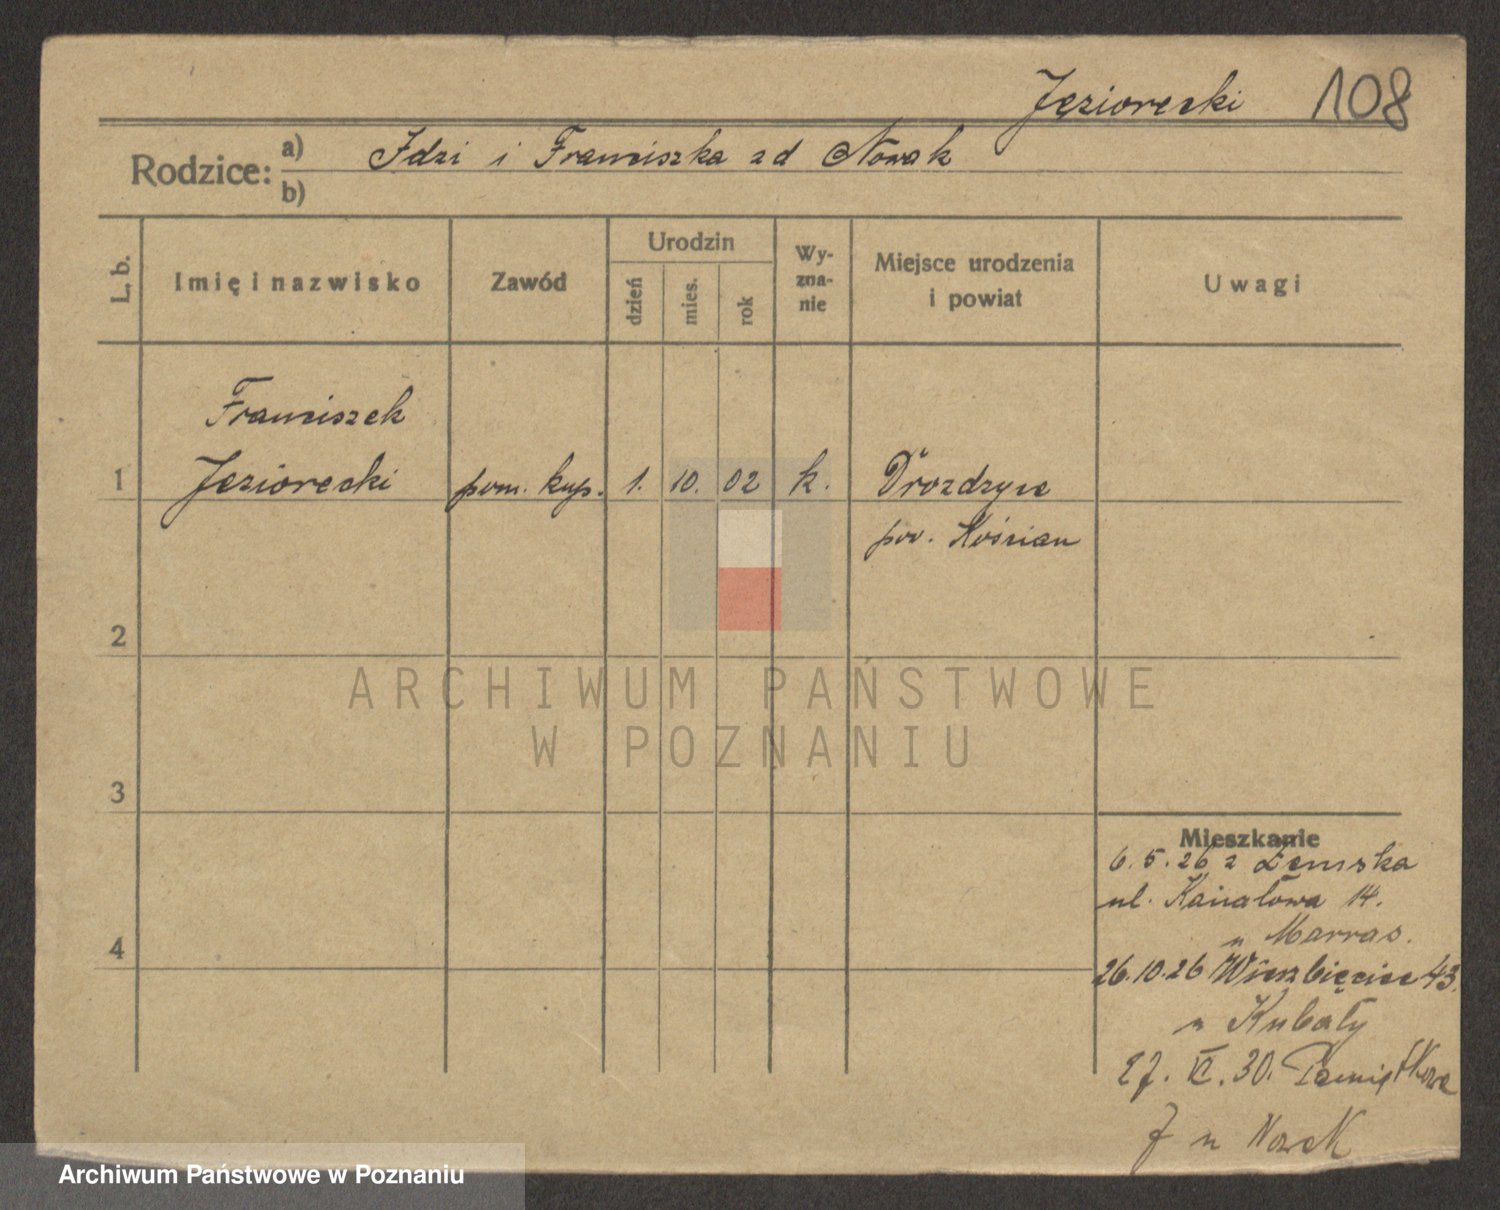 Jeziorecki 108
Rodzice: a) Idzi i Franciszka zd Nowak
b)
L. b.
Imię i nazwisko
Zawód
Urodzin
dzień
mies.
rok
Wy-
zna-
nie
Miejsce urodzenia
i powiat
Uwagi
Franciszek
1 Jeziorecki pom. kup. 1. 10. 02 k. Drozdzyce
pow. Kościan
2
ARCHIWUM PAŃSTWOWE
W POZNANIU
3
Mieszkanie
6.5.26 z Zemska
ul. Kanałowa 14.
u Marras.
4
26.10.26 Wierzbięcice 43.
u Kubały
27. VI. 30. Pamiątkowa
7 u Nowak
Archiwum Państwowe w Poznaniu